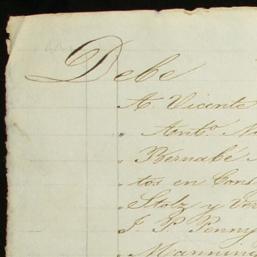 Debe
A Vicente
" Anto.
" Bernabe
tos en Con
Stolz y
J. P. Penny
Manning